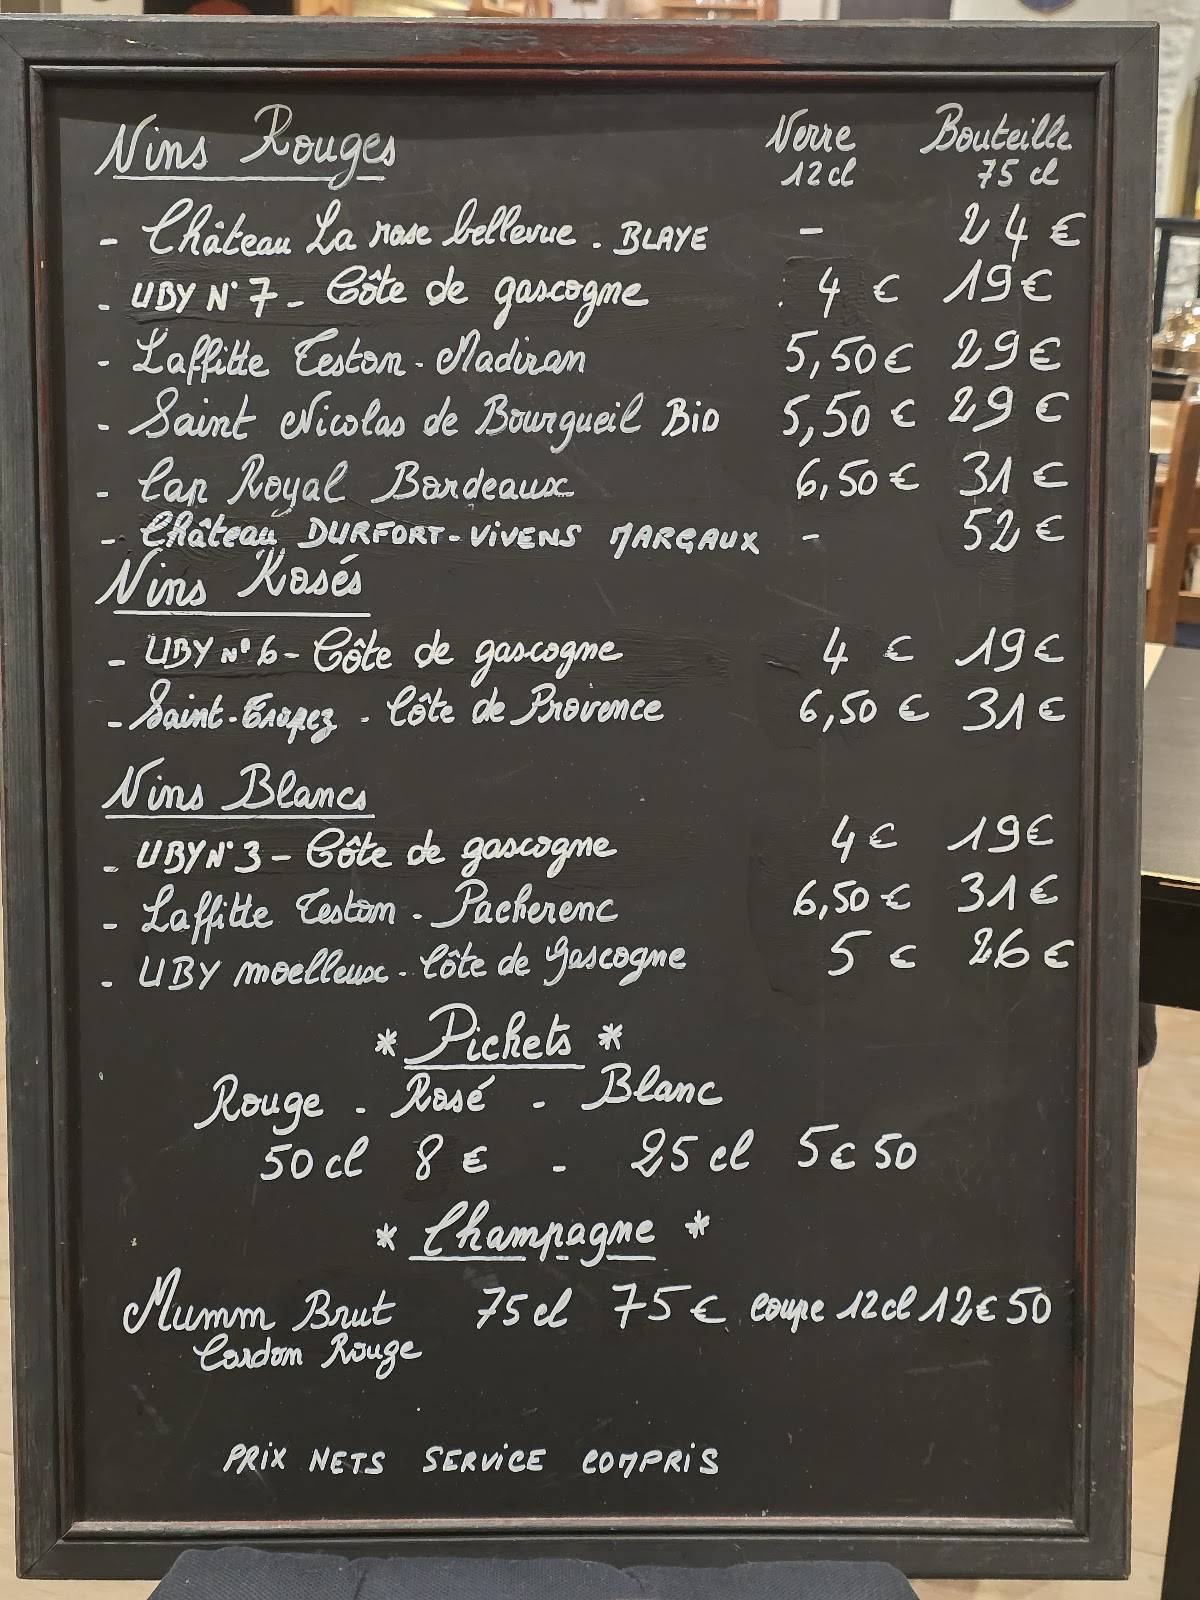 Vins Rouges Verre Bouteille
12cl 75 cl
- Château La rose bellevue . BLAYE - 24 €
- UBY N°7 - Côte de gascogne 4 € 19€
- Laffitte Teston - Madiran 5,50€ 29€
- Saint Nicolas de Bourgueil Bio 5,50 € 29 €
- Cap Royal Bordeaux 6,50€ 31€
- Château DURFORT-VIVENS MARGAUX - 52€
Vins Rosés
- UBY N°6 - Côte de gascogne 4 € 19€
- Saint-Tropez - Côte de Provence 6,50 € 31€
Vins Blancs
- UBY N°3 - Côte de gascogne 4€ 19€
- Laffitte Teston - Pacherenc 6,50€ 31€
- UBY moelleux - Côte de Gascogne 5 € 26€
* Pichets *
Rouge - Rosé - Blanc
50 cl 8 € - 25 cl 5€50
* Champagne *
Mumm Brut 75cl 75€ coupe 12cl 12€50
Cordon Rouge
PRIX NETS SERVICE COMPRIS